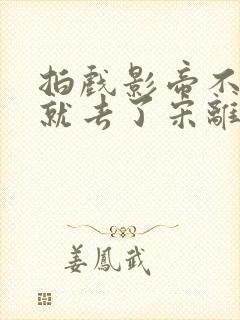 拍戲影帝不
就去了宋離
姜鳳武